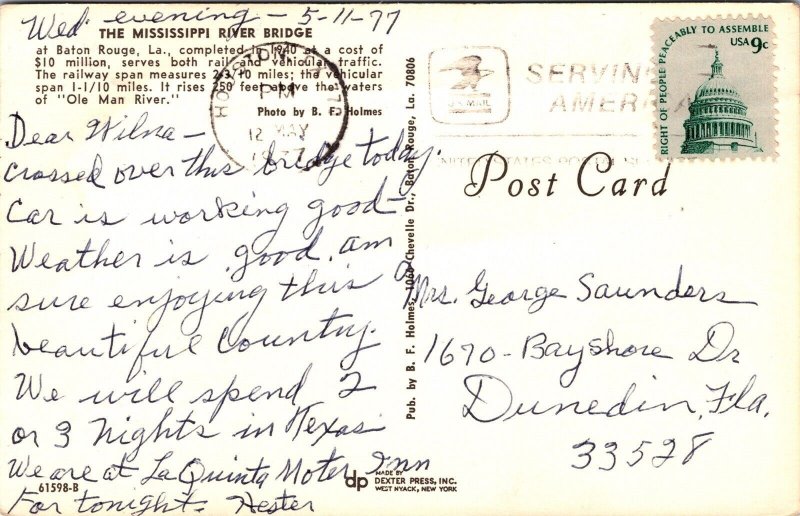 Wed. evening - 5-11-77
THE MISSISSIPPI RIVER BRIDGE
at Baton Rouge, La., completed in 1940 at a cost of
$10 million, serves both rail and vehicular traffic.
The railway span measures 2-3/10 miles; the vehicular
span 1-1/10 miles. It rises 250 feet above the waters
of "Ole Man River."
Photo by B. F. Holmes
Dear Wilna -
Crossed over this bridge today.
Car is working good -
Weather is good. am
sure enjoying this
beautiful Country.
We will spend 2
or 3 nights in Texas
We are at La Quinta Motor Inn
For tonight. Hester
61598-B
PM
12 MAY
1977
U.S. MAIL
SERVING
AMERICA
UNITED STATES POSTAL
RIGHT OF PEOPLE PEACEABLY TO ASSEMBLE
USA 9c
Post Card
Pub. by B. F. Holmes, 1060 Chevelle Dr., Baton Rouge, La. 70806
Mrs. George Saunders
1670 - Bayshore Dr
Dunedin, Fla.
33528
dp
MADE BY
DEXTER PRESS, INC.
WEST NYACK, NEW YORK